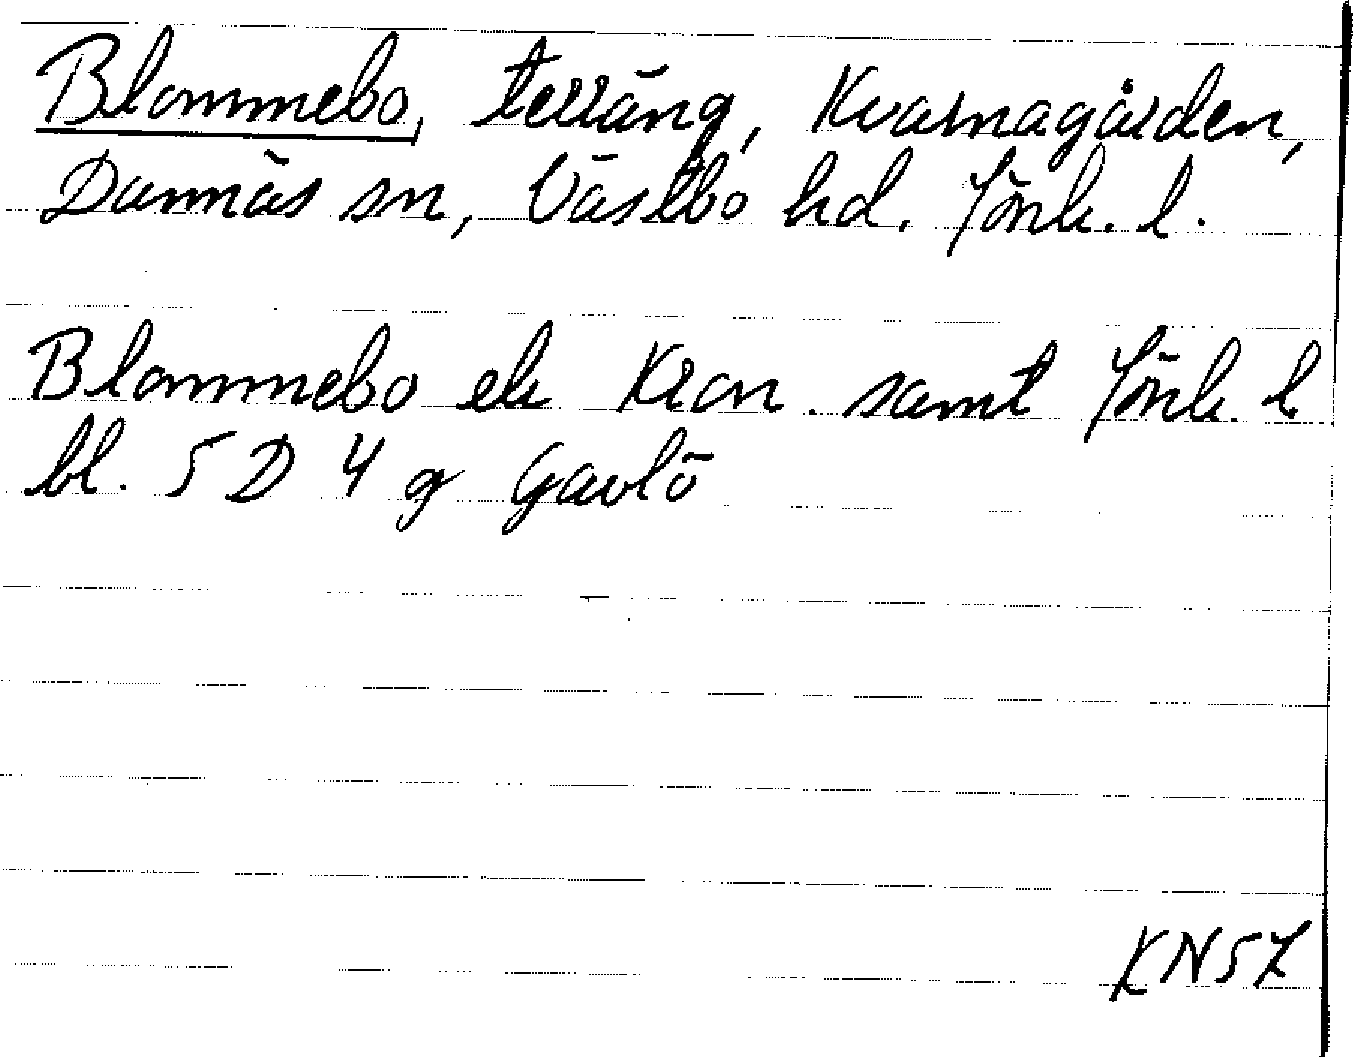 Blommebo, terräng, Kvarnagården,
Dannäs sn, Västbo hd. Jönk. l.
Blommebo ek Kron. samt Jönk. l
bl. 5 D 4 g Gavlö
KN57